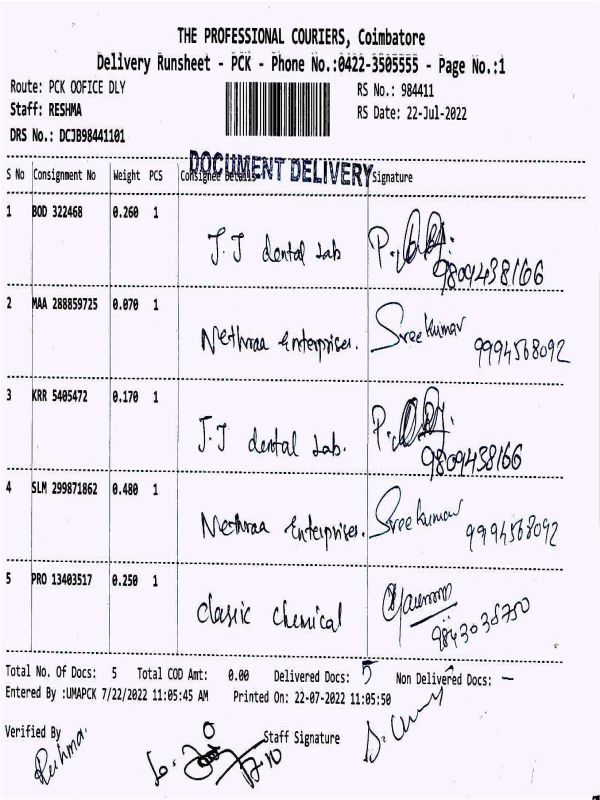 THE PROFESSIONAL COURIERS, Coimbatore
Delivery Runsheet - PCK - Phone No.:0422-3505555 - Page No.:1
Route: PCK OOFICE DLY RS No.: 984411
Staff: RESHMA RS Date: 22-Jul-2022
DRS No.: DCJB98441101
DOCUMENT DELIVERY
S No Consignment No Weight PCS Consignee Details Signature
1 BOD 322468 0.260 1
J.J dental Lab P.
9809438166
2 MAA 288859725 0.070 1
Nethraa Enterprises. Sree Kumar
9994568092
3 KRR 5405472 0.170 1
J.J dental Lab. P.
9809438166
4 SLM 299871862 0.480 1
Nethraa Enterprises. Sree Kumar
9994568092
5 PRO 13403517 0.250 1
classic chemical
9843038750
Total No. Of Docs: 5 Total COD Amt: 0.00 Delivered Docs: 5 Non Delivered Docs: -
Entered By :UMAPCK 7/22/2022 11:05:45 AM Printed On: 22-07-2022 11:05:50
Verified By Staff Signature
Reshma.